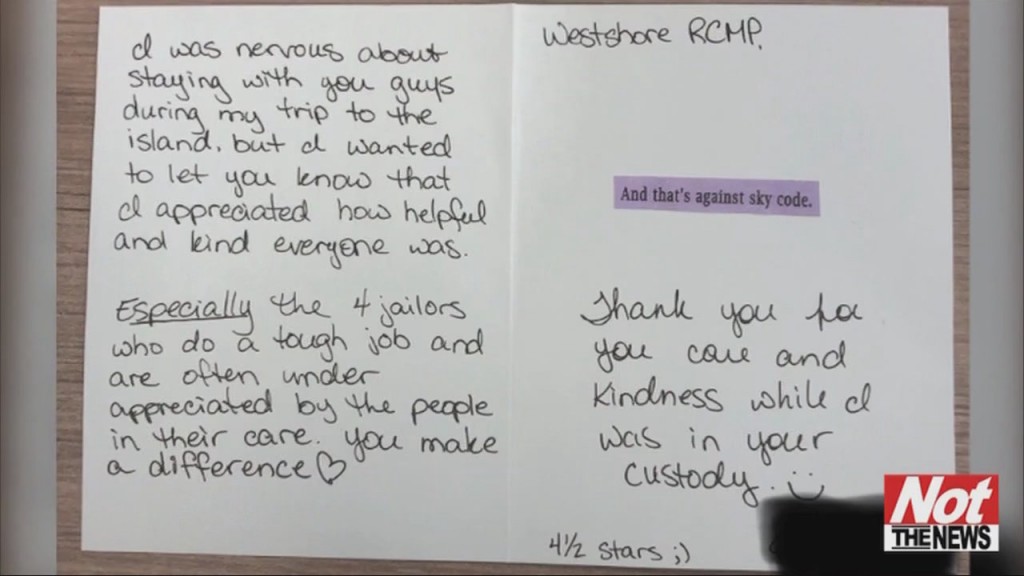 I was nervous about
staying with you guys
during my trip to the
island, but I wanted
to let you know that
I appreciated how helpful
and kind everyone was.
Especially the 4 jailors
who do a tough job and
are often under
appreciated by the people
in their care. You make
a difference♡
Westshore RCMP,
And that's against sky code.
Thank you for
you care and
kindness while I
was in your
custody. :)
4½ stars ;)
Not
THE NEWS